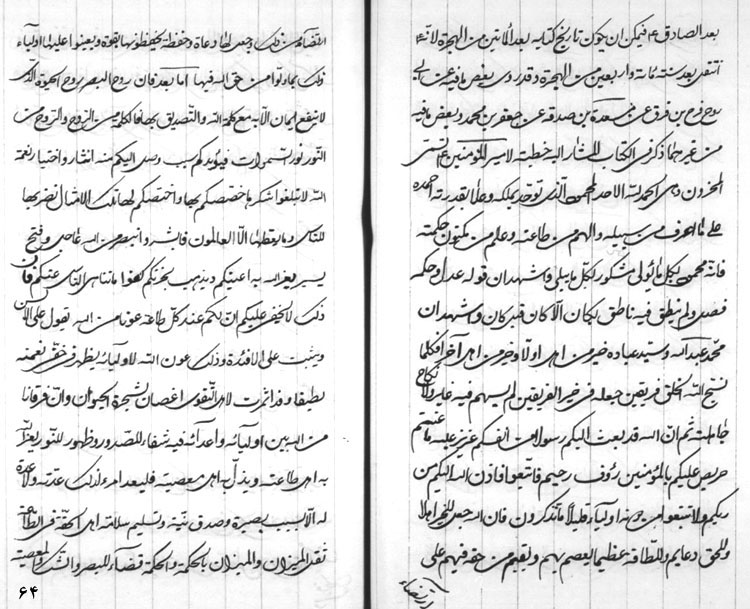 بعد الصادق ع فيمكن ان يكون تاريخ كتابه بعد المأتين من الهجرة لانه
انتقل بعد سنة مائة واربعين من الهجرة وقد روى بعض ما فيه عن ابي
روح فرج بن فروة عن مسعدة بن صدقه عن جعفر بن محمد وبعض ما فيه
من غيرهما ذكر في الكتاب المشار اليه خطبة لامير المؤمنين ع تسمى
المخزون وهي الحمد لله الاحد المحمود الذي توحد بملكه وعلا بقدرته احمده
على ما عرف من سبيله والهم من طاعته وعلم من مكنون حكمته
فانه محمود بكل ما يولى مشكور بكل ما يبلى واشهد ان قوله عدل وحكمه
فصل ولم ينطق فيه ناطق بكان الا كان قبل كان واشهد ان
محمدا عبد الله وسيد عباده خير من اهل اولا وخير من اهل آخرا فكلما
نسج الله الخلق فريقين جعله في خير الفريقين لم يسهم فيه عاير ولا نكاح
جاهلية ثم ان الله قد بعث اليكم رسولا من انفسكم عزيز عليه ما عنتم
حريص عليكم بالمؤمنين رؤوف رحيم فاتبعوا ما انزل اليكم من
ربكم ولا تتبعوا من دونه اولياء قليلا ما تذكرون فان الله جعل للخير اهلا
وللحق دعايم وللطاعة عصما يعصم بهم ويقيم من حقه فيهم على
ارتضاء
ارتضاء من ذلك وجعل لها رعاة وحفظة يحفظونها بقوة ويعينوا عليها اولياء
ذلك بما ولوا من حق الله فيها اما بعد فان روح البصر روح الحيوة الذي
لا ينفع ايمان الا به مع كلمة الله والتصديق بها فالكلمة من الروح والروح من
النور والنور نور السموات فبأيديكم سبب وصل اليكم منه ايثار واختيار نعمة
الله لا تبلغوا شكرها خصصكم بها واختصكم لها وتلك الامثال نضربها
للناس وما يعقلها الا العالمون فابشروا بنصر من الله عاجل وفتح
يسير يقر الله به اعينكم ويذهب بحزنكم كفوا ما تناهى الناس عنكم فان
ذلك لا يخفى عليكم ان لكم عند كل طاعة عونا من الله يقول على الالسن
ويثبت على الافئدة وذلك عون الله لاوليائه يظهر في خفي نعمته
لطيفا وقد اثمرت لاهل التقوى اغصان شجرة الحيوة وان فرقانا
من الله بين اوليائه واعدائه فيه شفاء للصدور وظهور للنور يعز الله
به اهل طاعته ويذل به اهل معصيته فليعد امرء لذلك عدته ولا عدة
له الا بسبب بصيرة وصدق نية وتسليم سلامة اهل الخفة في الطاعة
ثقل الميزان والميزان بالحكمة والحكمة فضاء للبصر والشك والمعصية
۶۴